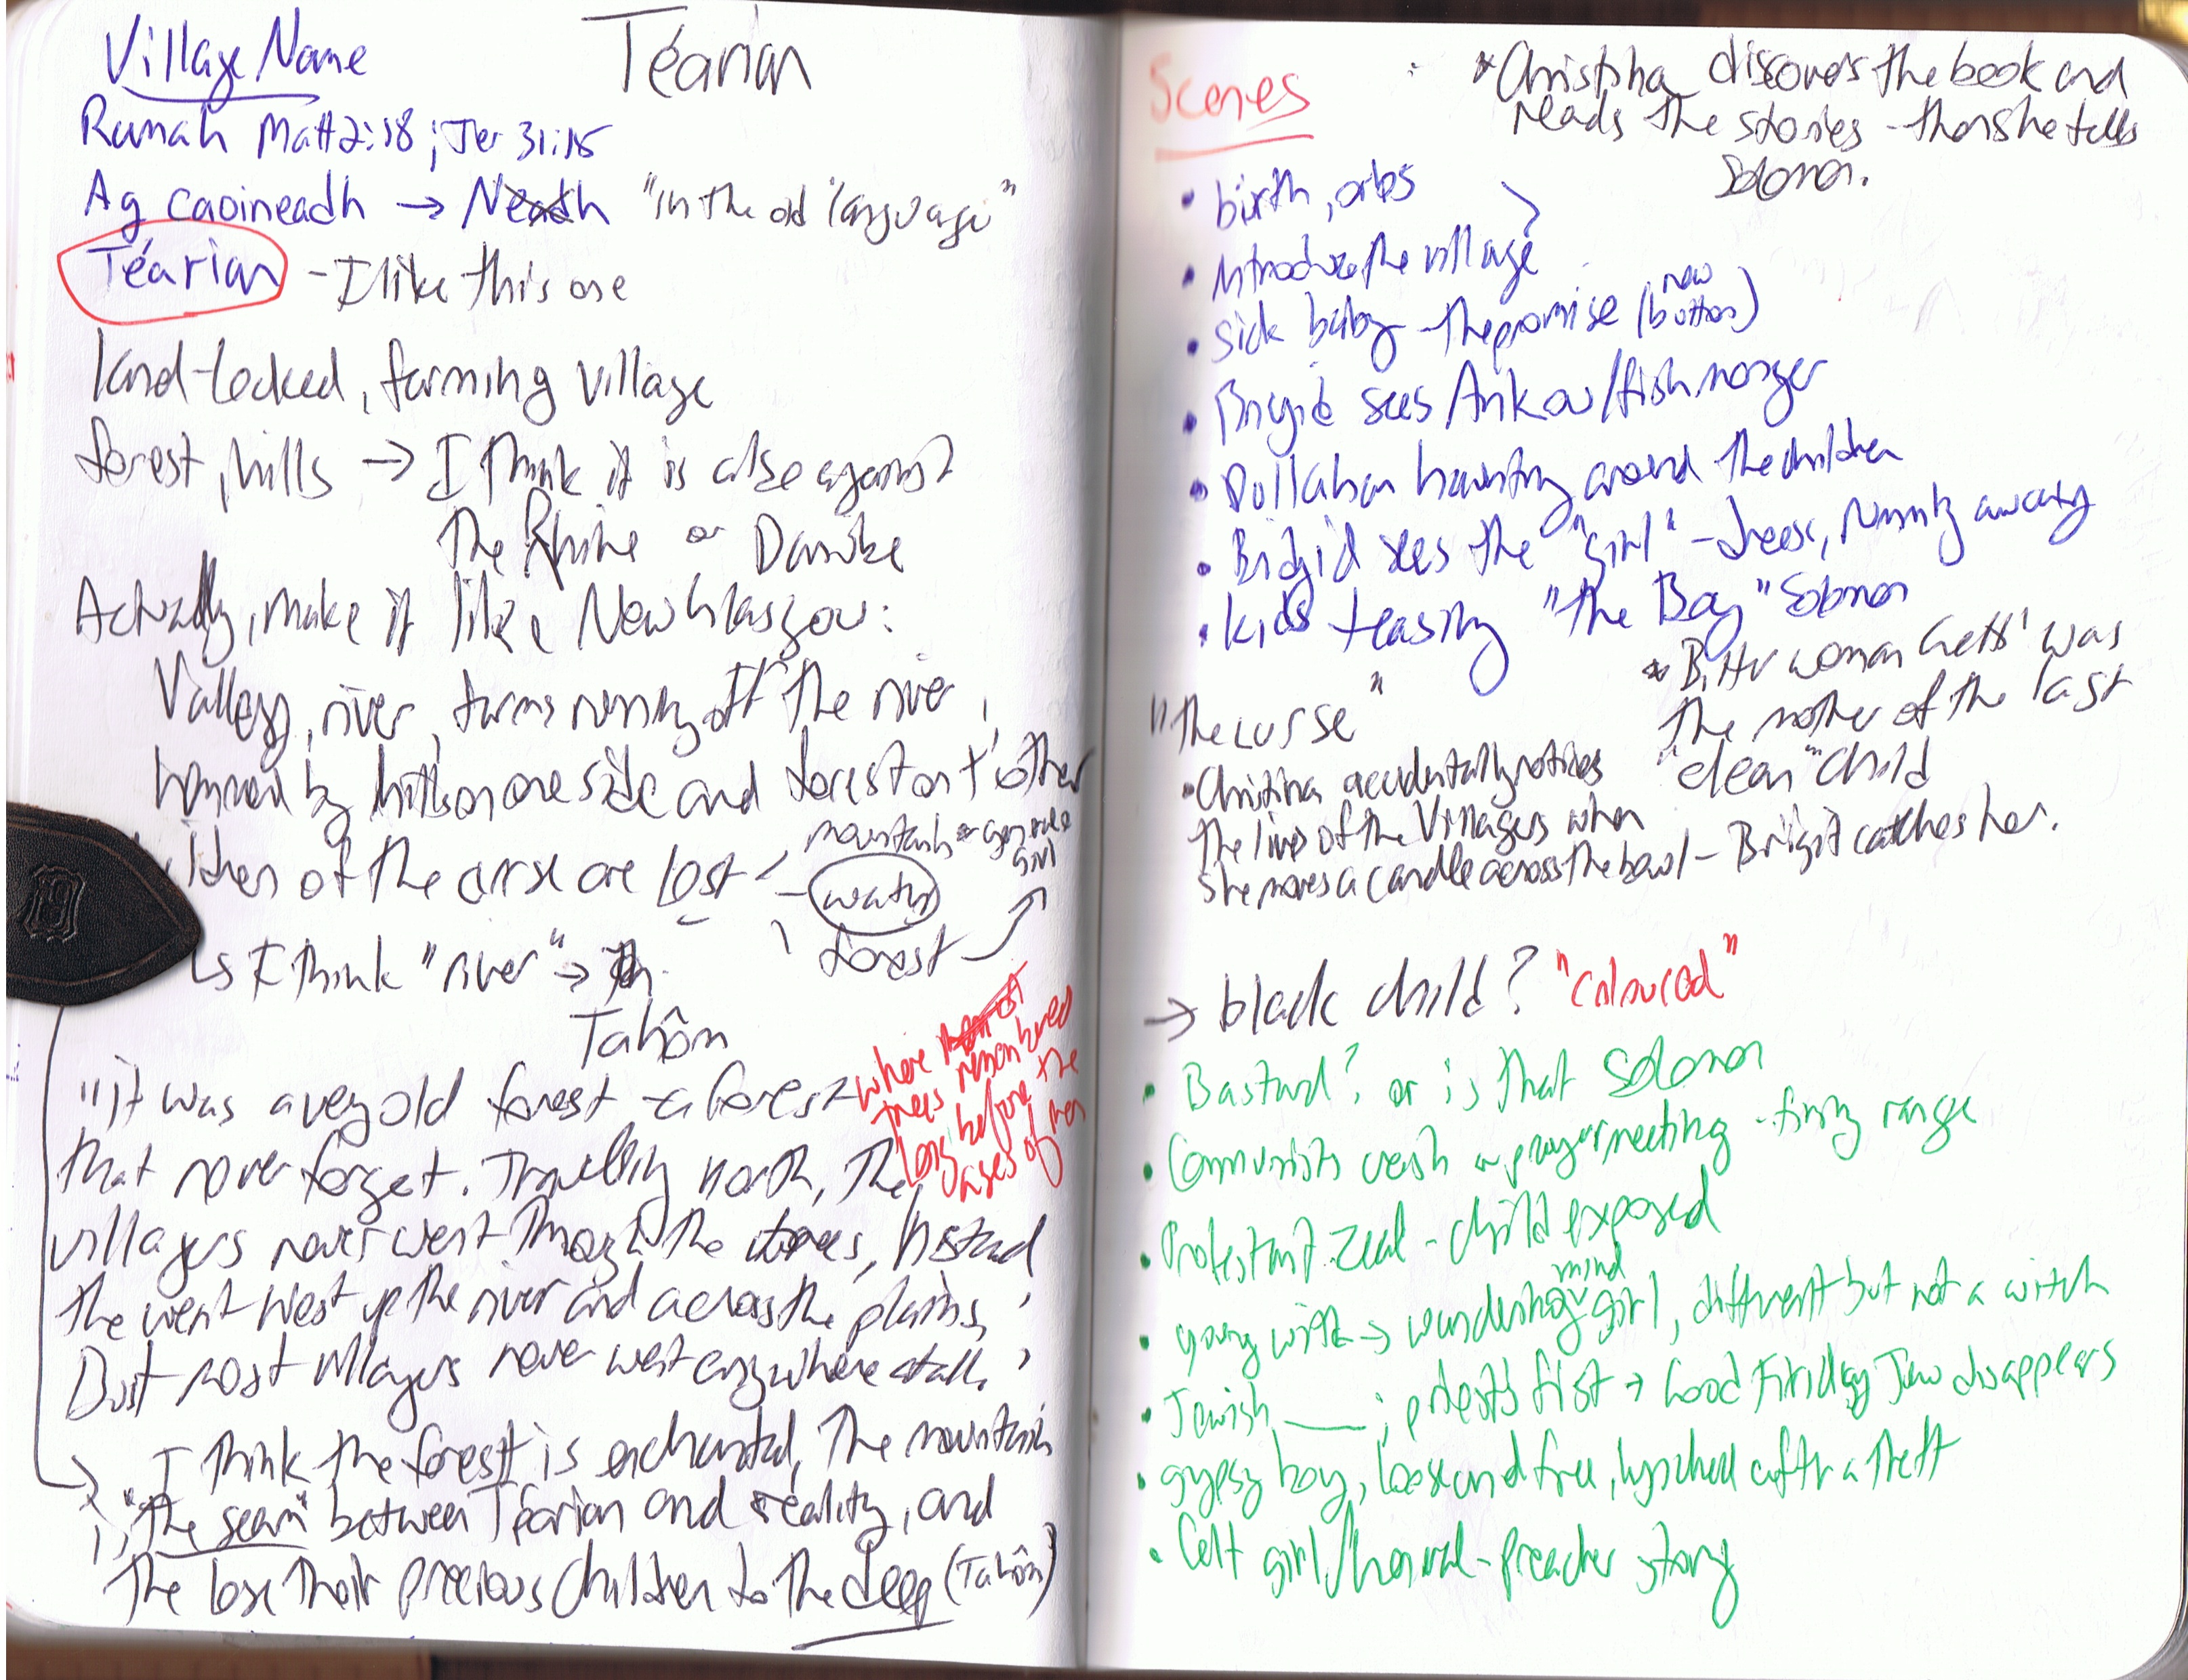 Village Name
Téarian
Ramah Matt 2:18; Jer 31:15
Ag caoineadh → Neadh "in the old language"
Téarian - I like this one
land-locked, farming village
forest, hills → I think it is also against
the Rhine or Danube
Actually, make it like New Glasgow:
Valley, river, farms running off the river,
hemmed by hills on one side and forest on t'other
of the curse are lost
mountains
girl
water
forest
↳ I think "river" →
Tahôm
"it was a very old forest - a forest
where
trees remembered
long before the
ages of men
that never forget. Travelling north, the
villagers never went through the trees, instead
the went West up the river and across the plains,
But most villagers never went anywhere at all.
I think the forest is enchanted, the mountain
is "the seam" between Téarian and reality, and
the lose their precious children to the deep (Tahôm)
Scenes
* Christina discovers the book and
reads the stories - then she tells
Solomon.
• birth, orbs
• introduce the village
• sick baby - the promise (new button)
• Brigid sees Ankou/fishmonger
• Dullahan haunting around the children
• Bridgid sees the "girl" - trees, running away
• kids teasing "the Boy" Solomon
* Bitter woman was
the mother of the last
"clean" child
"the curse"
• Christina accidentally notices
the lives of the Villagers when
she moves a candle across the bowl - Brigit catches her.
→ black child? "coloured"
• Bastard? or is that Solomon
• Communists crash a prayer meeting - firing range
• Protestant zeal - child exposed
• young witch → wandering mind girl, different but not a witch
• Jewish ___; priests first → Good Friday Jew disappears
• gypsy boy, loose and free, lynched after a theft
• Celt girl/normal - preacher story